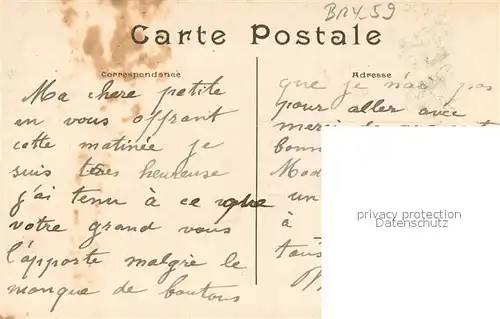 BRY_59
Carte Postale
Correspondance
Adresse
Ma chere petite
en vous offrant
cette matinée je
suis tres heureuse
j'ai tenu à ce que
votre grand vous
l'apporte malgré le
manque de boutons
que je n'ai pas
pour aller avec
merci de
bonn
Mad
un
à
tous
privacy protection
Datenschutz